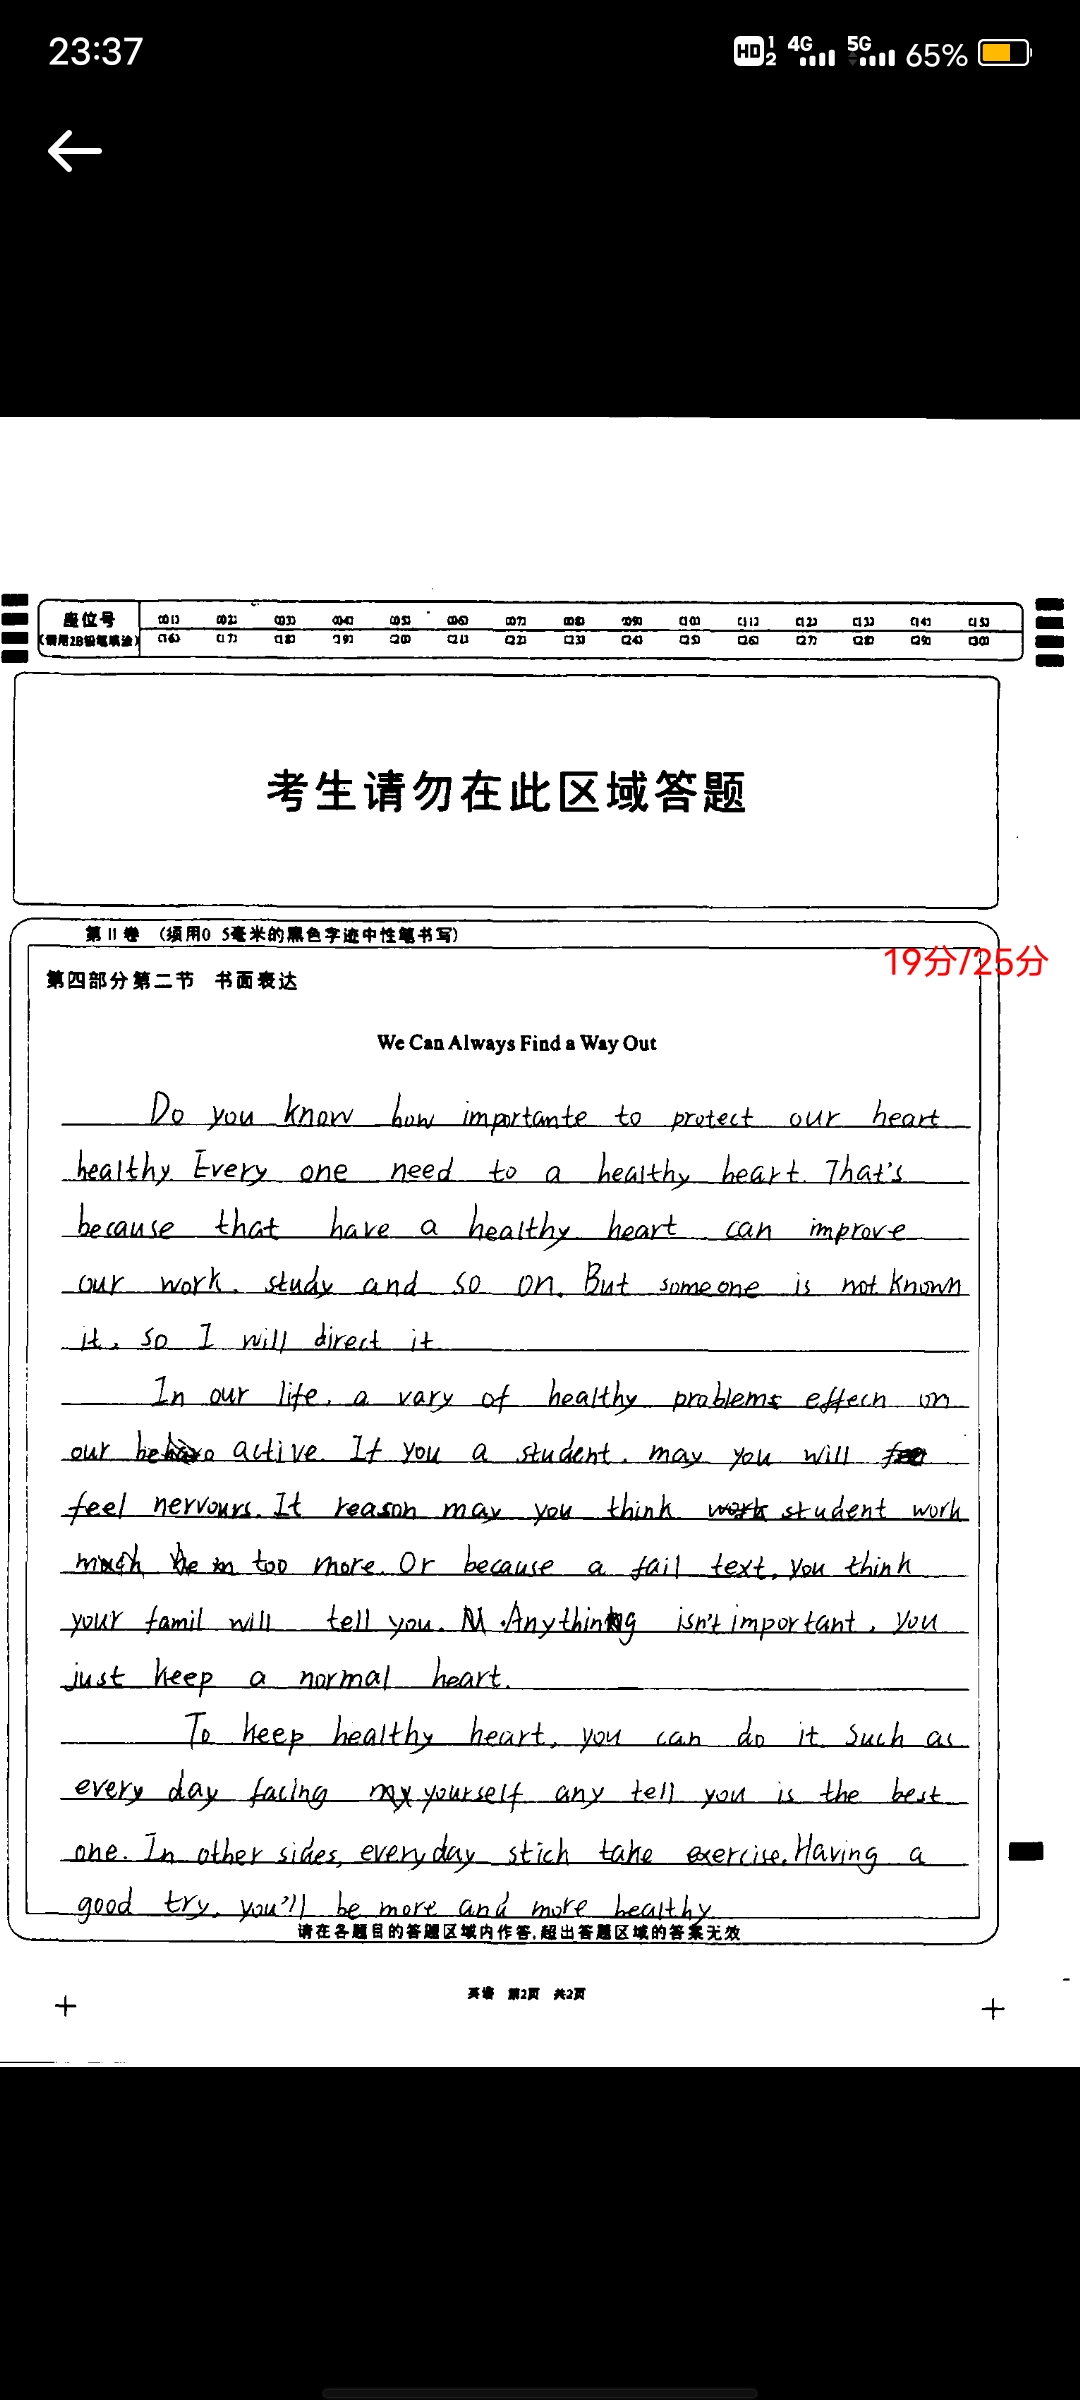 23:37
HD 1 2 4G 5G 65%
座位号
(需用2B铅笔填涂)
[01] [02] [03] [04] [05] [06] [07] [08] [09] [10] [11] [12] [13] [14] [15]
[16] [17] [18] [19] [20] [21] [22] [23] [24] [25] [26] [27] [28] [29] [30]
考生请勿在此区域答题
第 II 卷 (须用0 5毫米的黑色字迹中性笔书写)
19分/25分
第四部分第二节 书面表达
We Can Always Find a Way Out
Do you know how importante to protect our heart
healthy. Every one need to a healthy heart. That's
because that have a healthy heart can improve
our work. study and so on. But someone is not known
it, so I will direct it
In our life, a vary of healthy problems effech on
our active. If you a student, may you will
feel nervours. It reason may you think work student work
too more. Or because a fail text, you think
your famil will tell you. Anything isn't important, you
just keep a normal heart.
To keep healthy heart, you can do it such as
every day facing yourself any tell you is the best
one. In other sides, everyday stich take exercise. Having a
good try, you'll be more and more healthy
请在各题目的答题区域内作答,超出答题区域的答案无效
英语 第2页 共2页